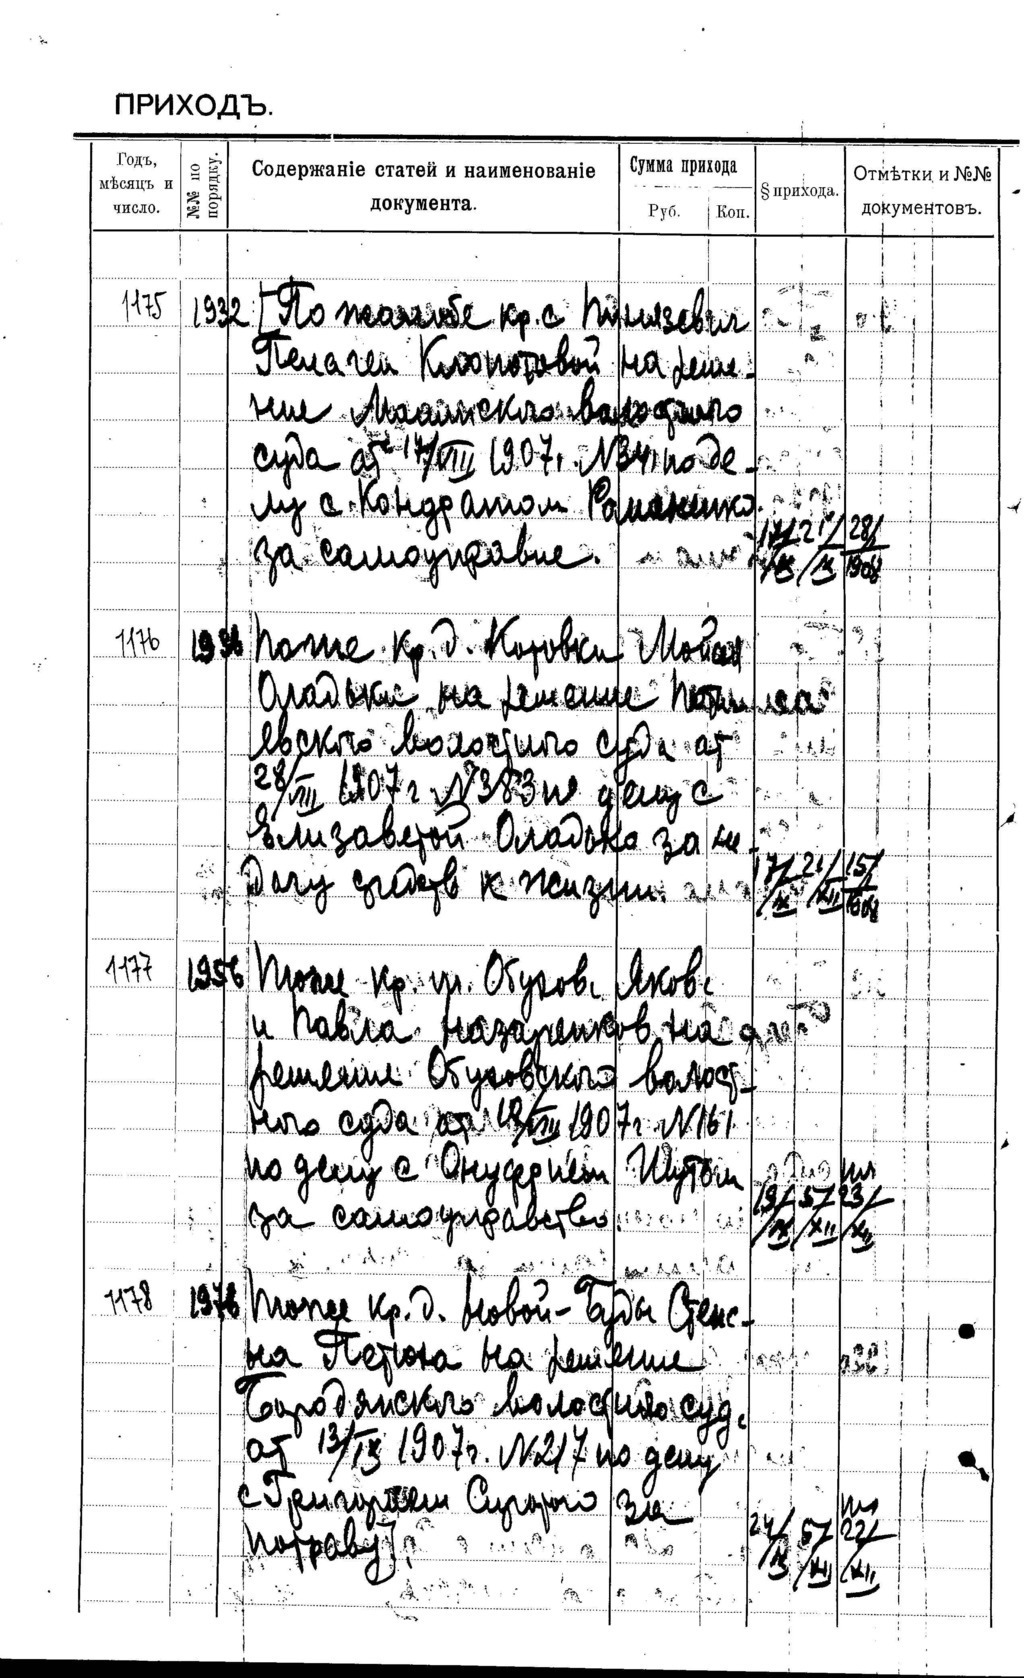 ПРИХОДЪ.
Годъ, мѣсяцъ и число.
№№ по порядку.
Содержаніе статей и наименованіе документа.
Сумма прихода
Руб. Коп.
§ прихода.
Отмѣтки и №№ документовъ.
1175 1932 [По жалобе кр. с.
Пелагеи Клопотовой на реше-
ние волостного
суда от 17/VIII 1907 г. N34 по де-
лу с Кондратом Романенко
за самоуправие. 17/IX 21/IX 28/1908
1176 1936 То же кр. д. Котовки
Оладько на решение
евского волостного суда от
28/VIII 1907 г. N383 по делу с
Елизаветой Оладько за не-
дачу средств к жизни. 17/IX 21/XII 15/1908
1177 1956 То же кр. м. Обухова Якова
и Павла Назаренков на
решение Обуховского волост-
ного суда от /VIII 1907 г. N161
по делу с Онуфрием Шутом
за самоуправство 19/IX 5/XII 23/XII
1178 1976 То же кр. д. Новой-Буды Степа-
на Петюха на решение
Бородянского волостного суда
от 13/IX 1907 г. N217 по делу
с Григорием за
потраву]. 24/IX 5/XII 22/XII